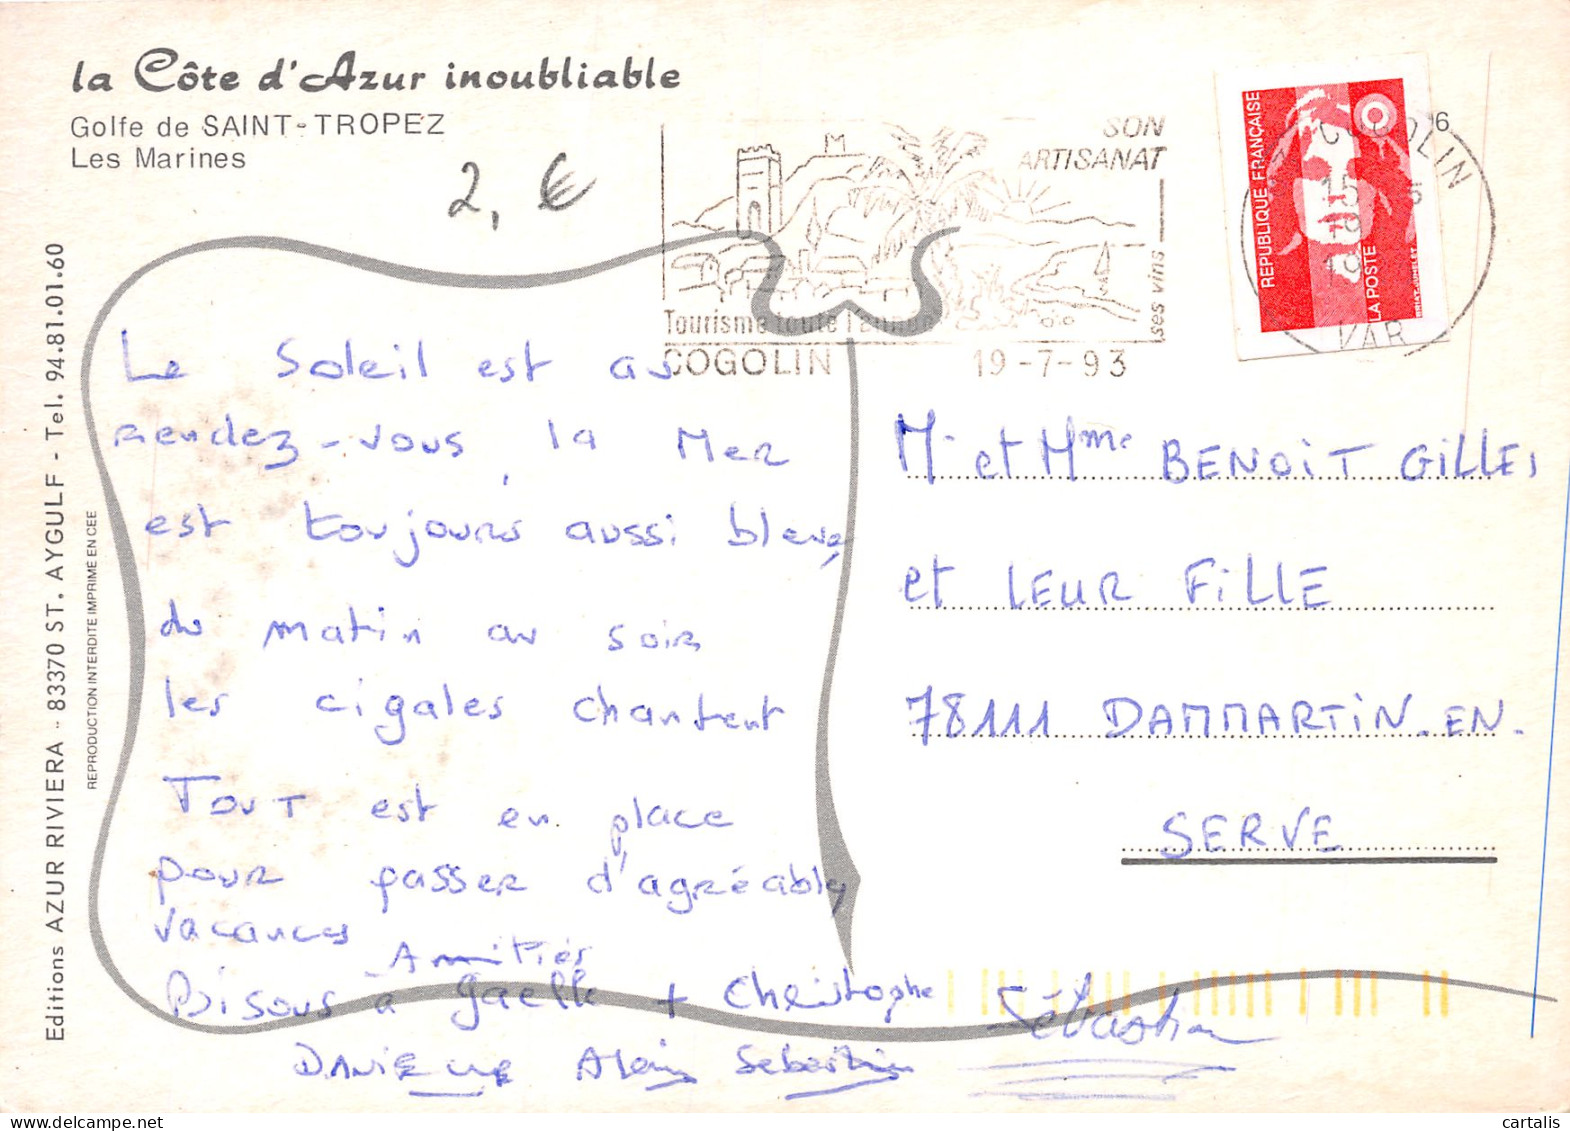 la Côte d'Azur inoubliable
Golfe de SAINT-TROPEZ
Les Marines
2, €
SON
ARTISANAT
ses vins
Tourisme toute l'année
COGOLIN
19-7-93
COGOLIN
15
VAR
6
REPUBLIQUE FRANÇAISE
LA POSTE
BRIAT-JUMELET
Editions AZUR RIVIERA - 83370 ST. AYGULF - Tel. 94.81.01.60
REPRODUCTION INTERDITE IMPRIME EN CEE
Le Soleil est au
rendez-vous, la Mer
est toujours aussi bleue,
du matin au soir
les cigales chantent
Tout est en place
pour passer d'agréably
vacances
Amitiés
Bisous à Gaelle + Christophe
Danielle Alain Sebastien
Sébastien
M. et Mme BENOIT GILLES
et LEUR FILLE
78111 DAMMARTIN.EN.
SERVE
cartalis